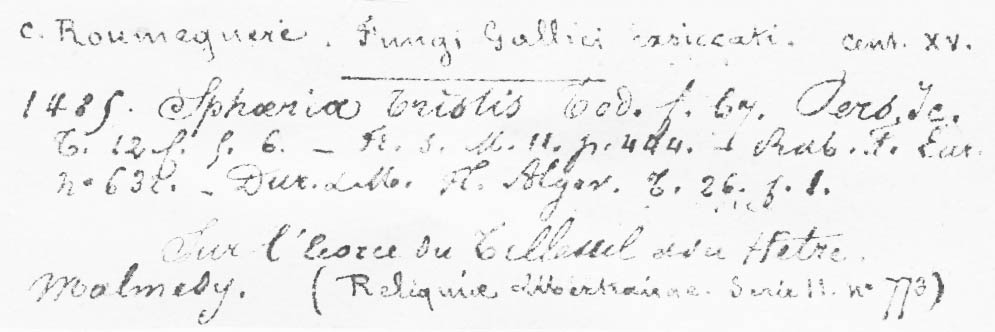 C. Roumeguere. Fungi Gallici exsiccati. Cent. XV.
1485. Sphæria tristis Tod. f. 67. Pers. Ic.
T. 12. f. 5. 6. _ Fr. S. M. II. p. 444. _ Rab. F. Eur.
nº 632. _ Dur. & M. Fl. Alger. T. 26. f. 1.
Sur l'écorce du Hetre.
Malmedy. (Reliquiæ Libertianae. Serie II. nº 773)